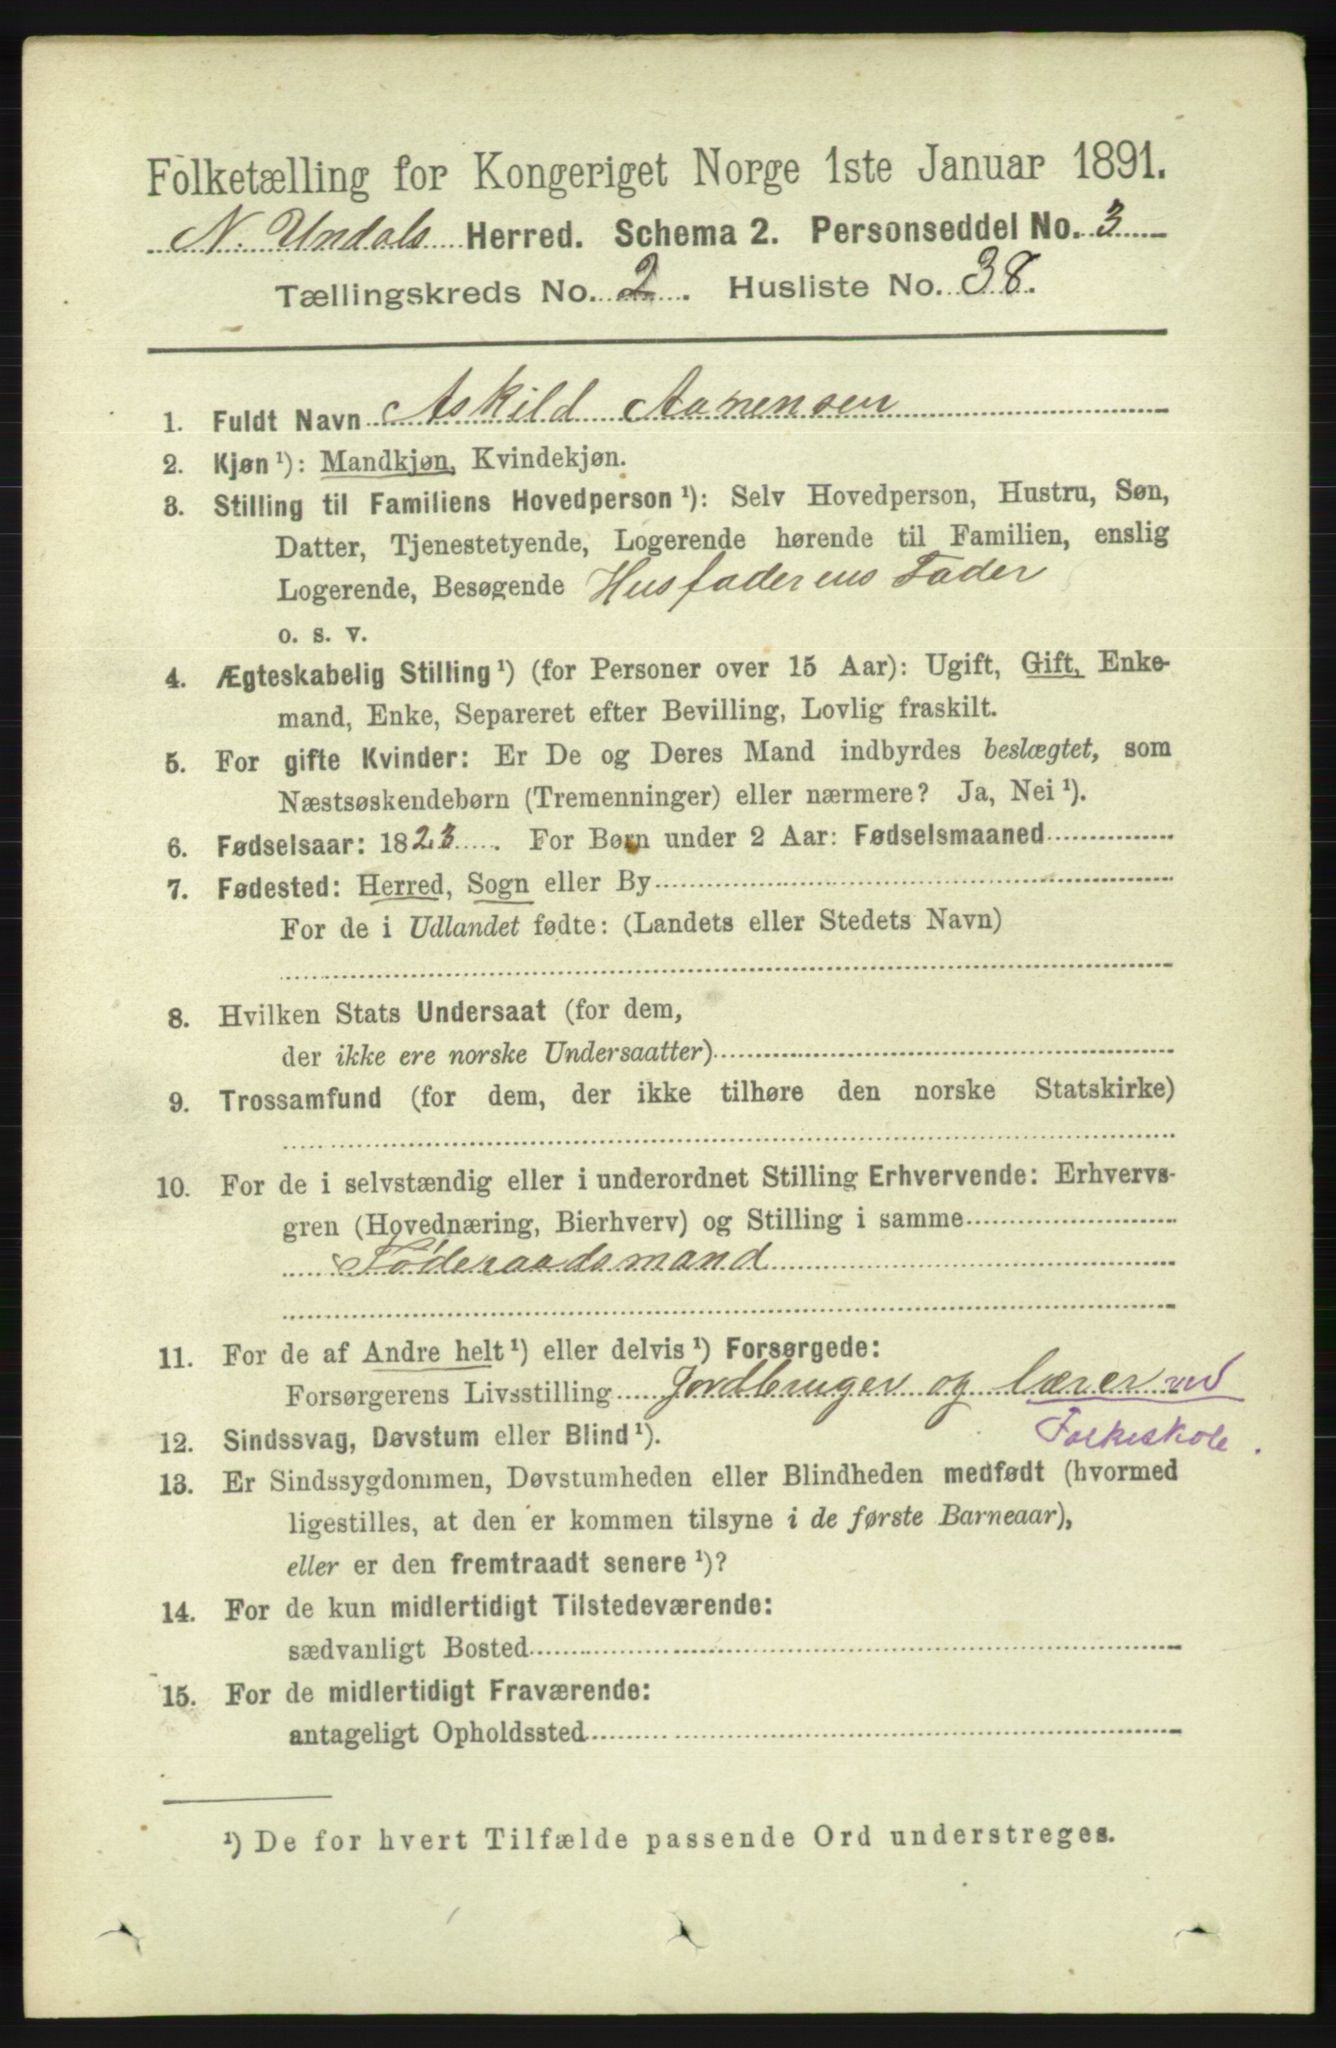 Folketælling for Kongeriget Norge 1ste Januar 1891.
N. Undals Herred. Schema 2. Personseddel No. 3
Tællingskreds No. 2. Husliste No. 38.
1. Fuldt Navn Askild Aanensen
2. Kjøn ¹): Mandkjøn, Kvindekjøn.
3. Stilling til Familiens Hovedperson ¹): Selv Hovedperson, Hustru, Søn,
Datter, Tjenestetyende, Logerende hørende til Familien, enslig
Logerende, Besøgende Husfaderens Fader
o. s. v.
4. Ægteskabelig Stilling ¹) (for Personer over 15 Aar): Ugift, Gift, Enke-
mand, Enke, Separeret efter Bevilling, Lovlig fraskilt.
5. For gifte Kvinder: Er De og Deres Mand indbyrdes beslægtet, som
Næstsøskendebørn (Tremenninger) eller nærmere? Ja, Nei ¹).
6. Fødselsaar: 1823. For Børn under 2 Aar: Fødselsmaaned
7. Fødested: Herred, Sogn eller By
For de i Udlandet fødte: (Landets eller Stedets Navn)
8. Hvilken Stats Undersaat (for dem,
der ikke ere norske Undersaatter)
9. Trossamfund (for dem, der ikke tilhøre den norske Statskirke)
10. For de i selvstændig eller i underordnet Stilling Erhvervende: Erhvervs-
gren (Hovednæring, Bierhverv) og Stilling i samme
Föderaadsmand
11. For de af Andre helt ¹) eller delvis ¹) Forsørgede:
Forsørgerens Livsstilling Jordbruger og lærer ved
Folkeskole.
12. Sindssvag, Døvstum eller Blind ¹).
13. Er Sindssygdommen, Døvstumheden eller Blindheden medfødt (hvormed
ligestilles, at den er kommen tilsyne i de første Barneaar),
eller er den fremtraadt senere ¹)?
14. For de kun midlertidigt Tilstedeværende:
sædvanligt Bosted
15. For de midlertidigt Fraværende:
antageligt Opholdssted
¹) De for hvert Tilfælde passende Ord understreges.